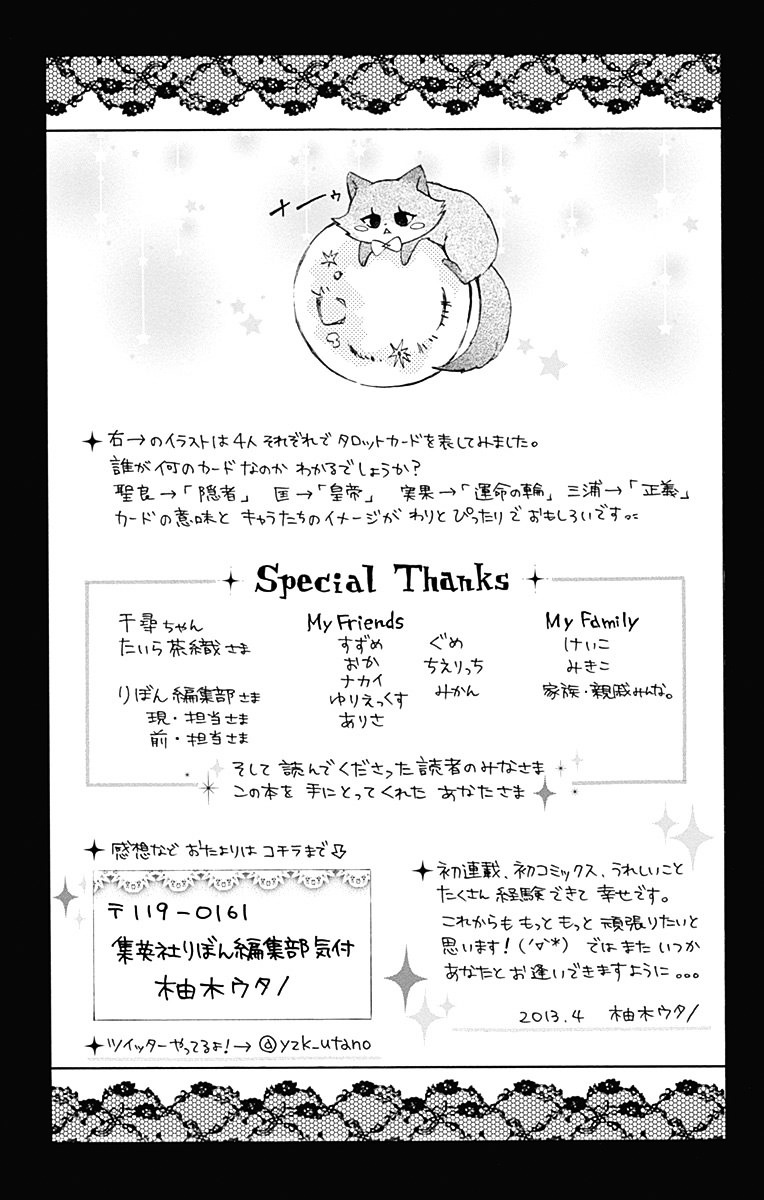 ナーゥ
右→のイラストは4人それぞれでタロットカードを表してみました。
誰が何のカードなのかわかるでしょうか?
聖良→「隠者」 匡→「皇帝」 実果→「運命の輪」 三浦→「正義」
カードの意味とキャラたちのイメージがわりとぴったりでおもしろいです。
Special Thanks
千尋ちゃん
たいら茶織さま
りぼん編集部さま
現・担当さま
前・担当さま
My Friends
すずめ
おか
ナカイ
ゆりえっくす
ありさ
ぐめ
ちえりっち
みかん
My Family
けいこ
みきこ
家族・親戚みんな。
そして 読んでくださった読者のみなさま
この本を 手にとってくれた あなたさま
感想など おたよりは コチラまで
〒119-0161
集英社りぼん編集部気付
柚木ウタノ
ツイッターやってるよ!→ @yzk_utano
初連載、初コミックス、うれしいこと
たくさん 経験できて 幸せです。
これからも もっと もっと 頑張りたいと
思います!('▽'*) では また いつか
あなたと お逢いできますように...
2013.4 柚木ウタノ